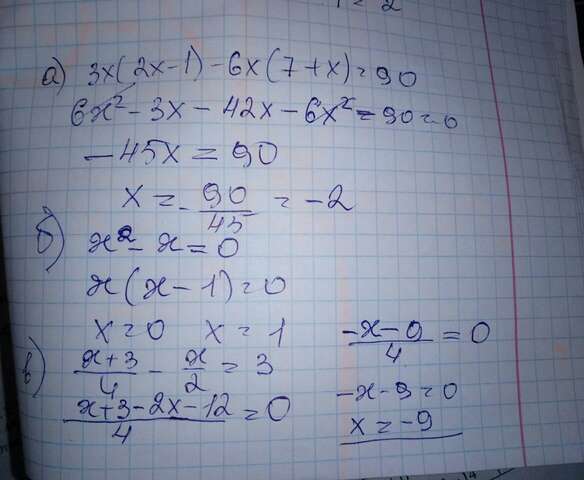 = 2
а) 3x(2x-1) - 6x(7+x)=90
6x² - 3x - 42x - 6x² - 90=0
- 45x = 90
x = - 90/45 = -2
б) x² - x = 0
x(x-1)=0
x=0 x=1
в) (x+3)/4 - x/2 = 3
(x+3-2x-12)/4 = 0
(-x-9)/4 = 0
-x-9=0
x=-9